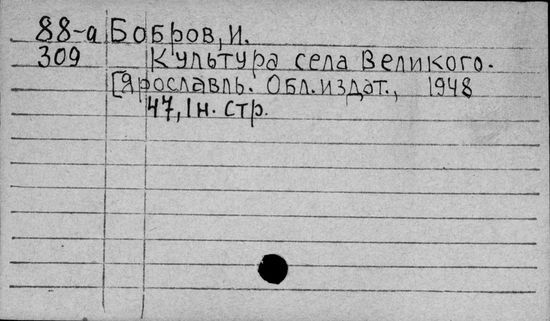 88-а Бобров, И.
309 Культура села Великого.
[Ярославль. Обл.издат., 1948
47, 1н. стр.